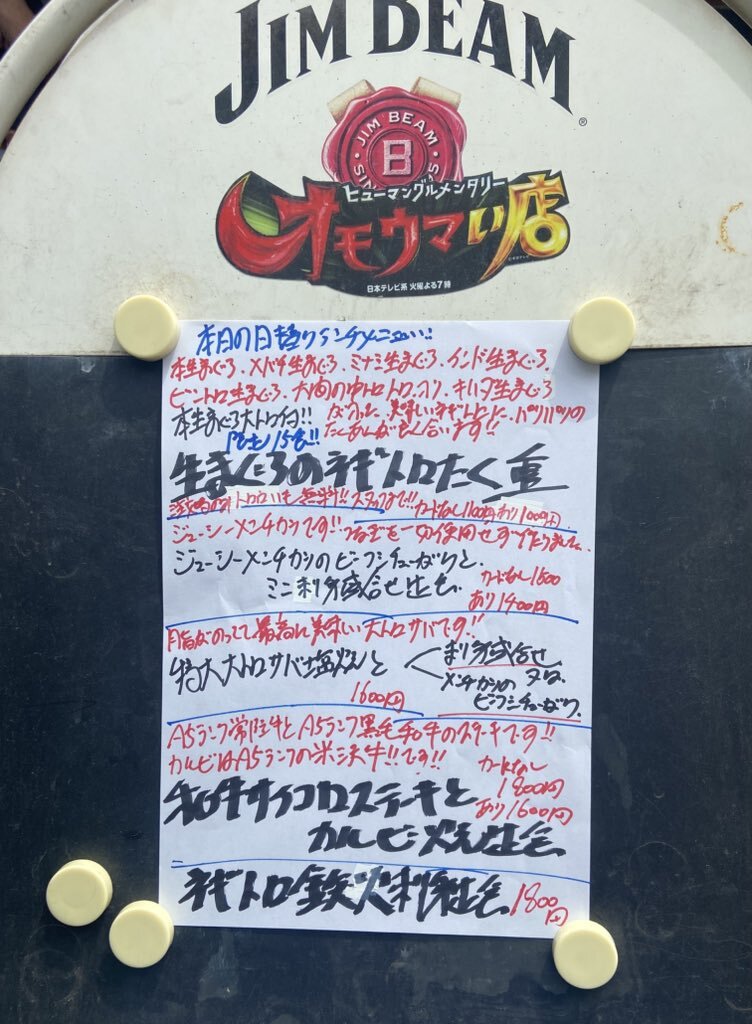 JIM BEAM
®
JIM BEAM
B
ヒューマングルメンタリー
オモウマい店
日本テレビ系 火曜よる7時
本日の日替りランチメニュー!!
本生まぐろ、メバチ生まぐろ、ミナミ生まぐろ、インド生まぐろ、
ビントロ生まぐろ、大間の中トロ トロ、キハダ生まぐろ
本生まぐろ大トロ付!! 美味しいネギトロに、パリパリの
たくあんが良く合います!!
限定15食!!
生まぐろのネギトロたく重
無料!! カードなし1200円 あり1000円
ジューシーメンチカツです!! つなぎを一切使用せず作りました。
ジューシーメンチカツのビーフシチューがけと、
ミニ刺身盛合せ定食 カードなし1500
あり1400円
脂がのってて最高に美味しい大トロサバです!!
特大大トロサバ塩焼と
刺身盛合せ
又は、
メンチカツの
ビーフシチューがけ
1600円
A5ランク常陸牛とA5ランク黒毛和牛のステーキです!!
カルビはA5ランクの米沢牛!!です!!
カードなし
1800円
和牛サイコロステーキと あり1600円
カルビ焼定食
ネギトロ鉄火刺定食 1800円